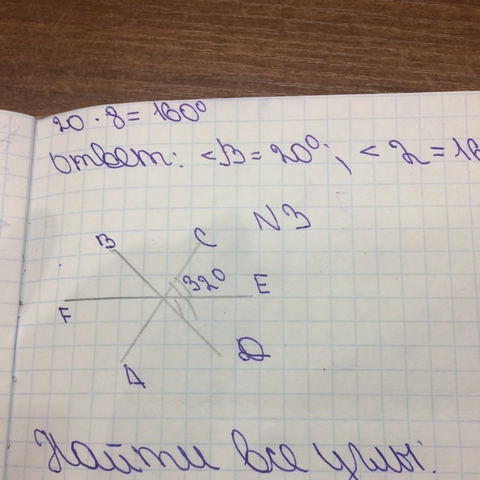 20 · 8 = 160°
ответ: <В = 20°; < 2 = 16
N3
В
С
32°
Е
F
D
А
Найти все углы: